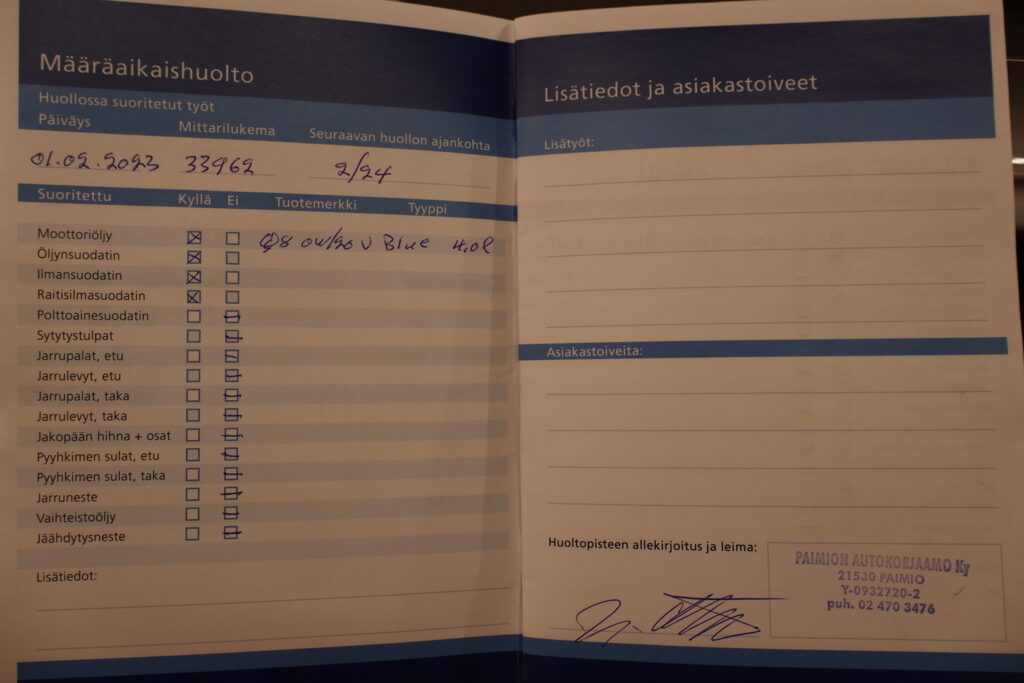 Määräaikaishuolto
Huollossa suoritetut työt
Päiväys Mittarilukema Seuraavan huollon ajankohta
01.02.2023 33962 2/24
Suoritettu Kyllä Ei Tuotemerkki Tyyppi
Moottoriöljy Q8 0W/20 V Blue 4.0l
Öljynsuodatin
Ilmansuodatin
Raitisilmasuodatin
Polttoainesuodatin
Sytytystulpat
Jarrupalat, etu
Jarrulevyt, etu
Jarrupalat, taka
Jarrulevyt, taka
Jakopään hihna + osat
Pyyhkimen sulat, etu
Pyyhkimen sulat, taka
Jarruneste
Vaihteistoöljy
Jäähdytysneste
Lisätiedot:
Lisätiedot ja asiakastoiveet
Lisätyöt:
Asiakastoiveita:
Huoltopisteen allekirjoitus ja leima:
PAIMION AUTOKORJAAMO Ky
21530 PAIMIO
Y-0932720-2
puh. 02 470 3476